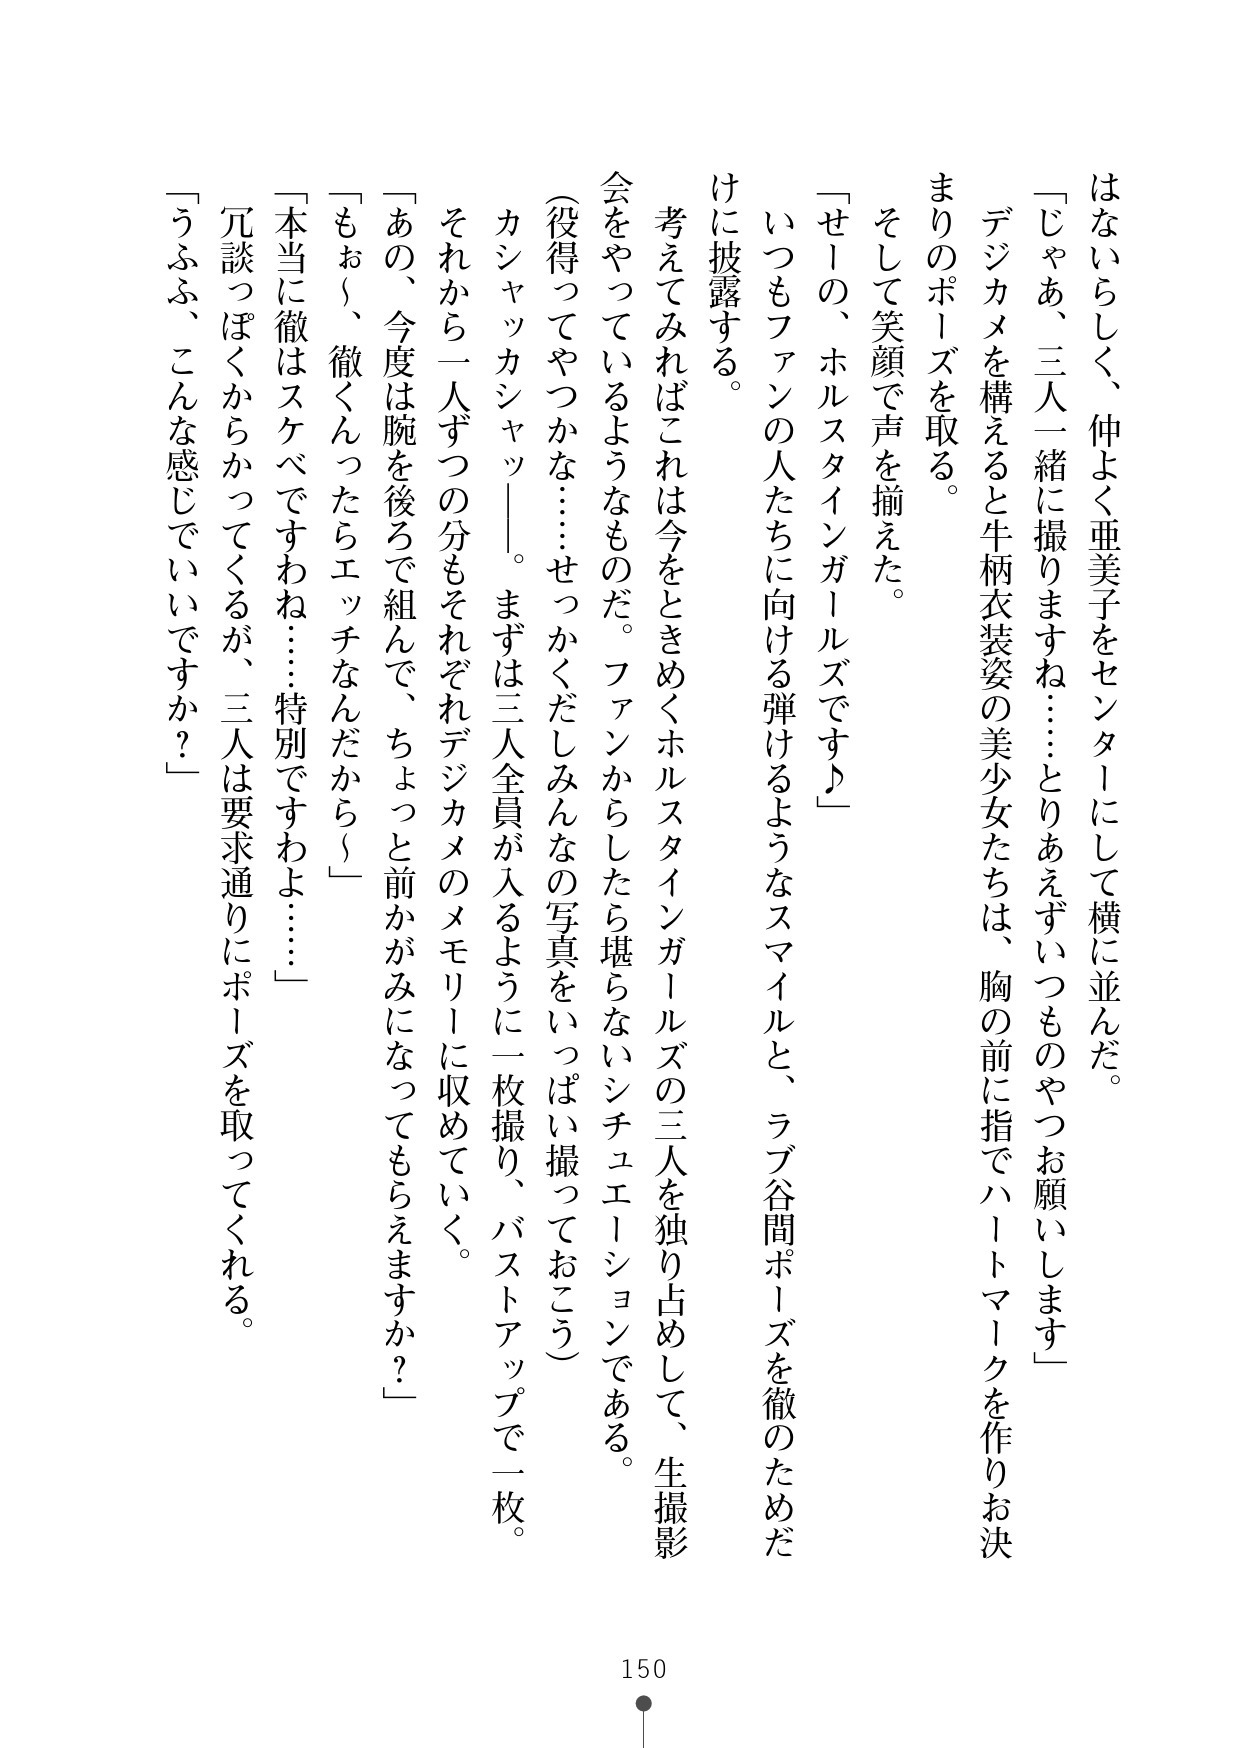 はないらしく、仲よく亜美子をセンターにして横に並んだ。
「じゃあ、三人一緒に撮りますね……とりあえずいつものやつお願いします」
デジカメを構えると牛柄衣装姿の美少女たちは、胸の前に指でハートマークを作りお決
まりのポーズを取る。
そして笑顔で声を揃えた。
「せーの、ホルスタインガールズです♪」
いつもファンの人たちに向ける弾けるようなスマイルと、ラブ谷間ポーズを徹のためだ
けに披露する。
考えてみればこれは今をときめくホルスタインガールズの三人を独り占めして、生撮影
会をやっているようなものだ。ファンからしたら堪らないシチュエーションである。
（役得ってやつかな……せっかくだしみんなの写真をいっぱい撮っておこう）
カシャッカシャッ――。まずは三人全員が入るように一枚撮り、バストアップで一枚。
それから一人ずつの分もそれぞれデジカメのメモリーに収めていく。
「あの、今度は腕を後ろで組んで、ちょっと前かがみになってもらえますか？」
「もぉ～、徹くんったらエッチなんだから～」
「本当に徹はスケベですわね……特別ですわよ……」
冗談っぽくからかってくるが、三人は要求通りにポーズを取ってくれる。
「うふふ、こんな感じでいいですか？」
150